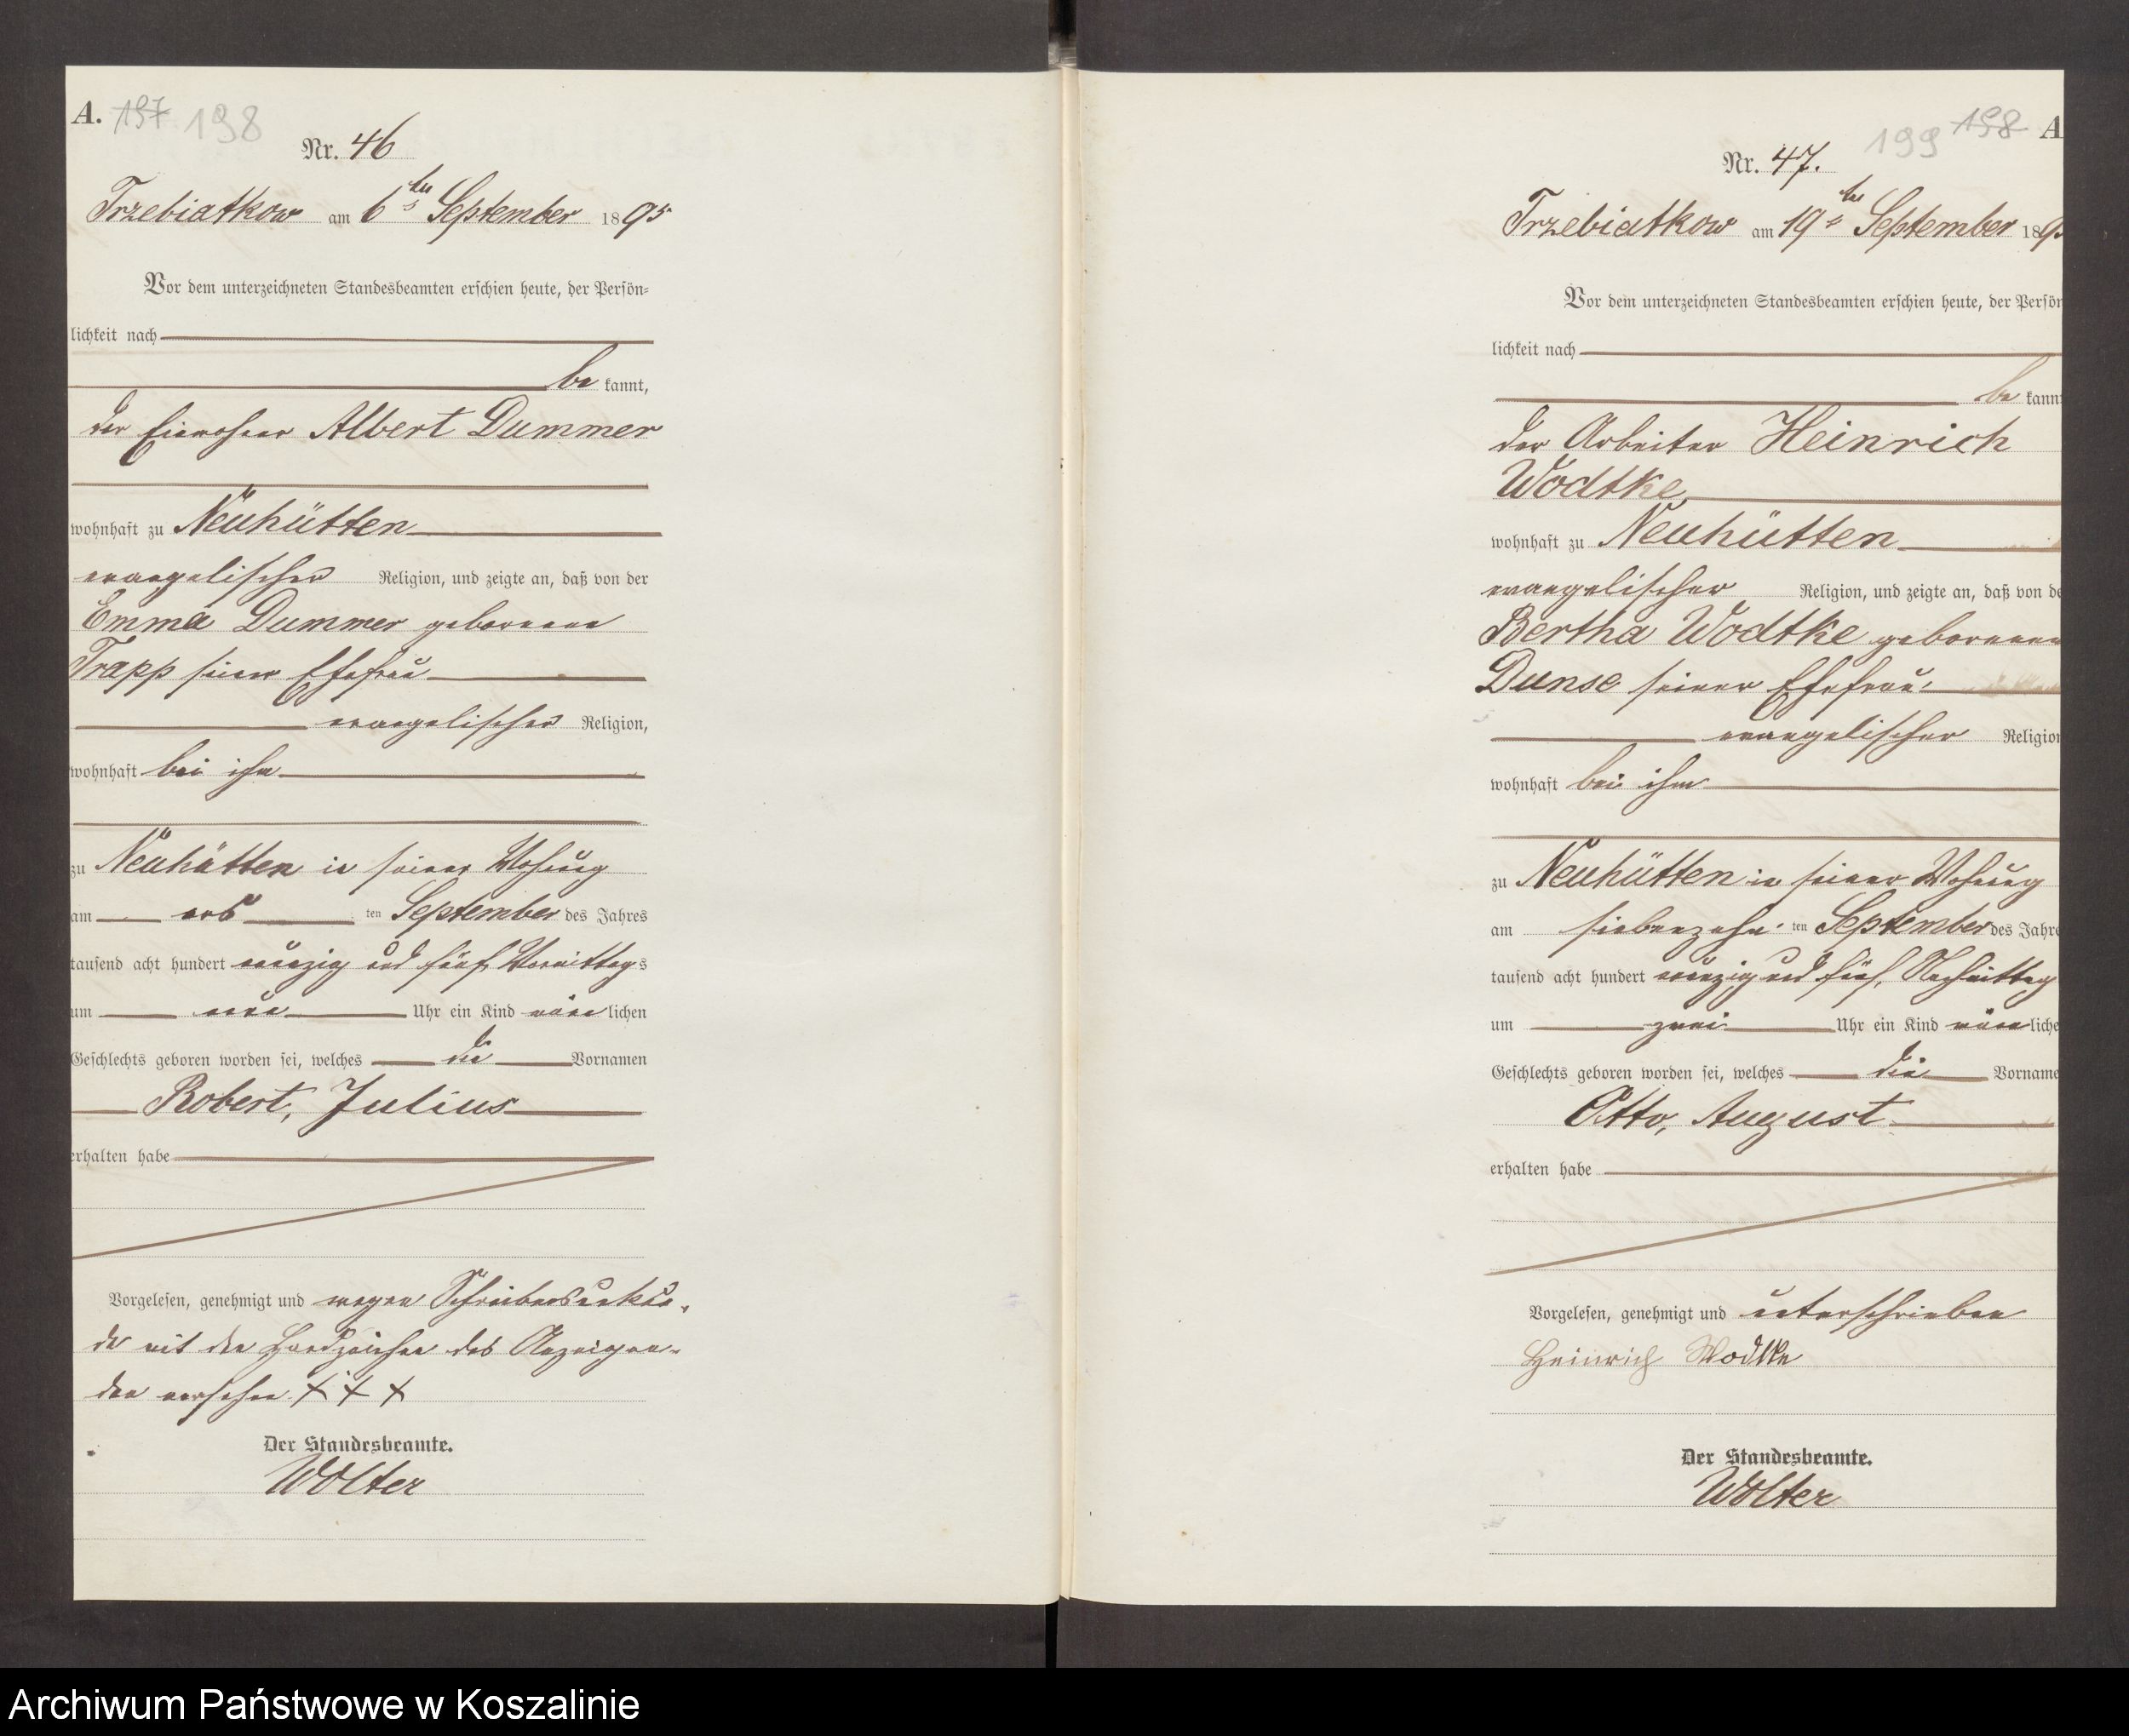 A. 197 198
Nr. 46
Trzebiatkow am 6ten September 1895
Vor dem unterzeichneten Standesbeamten erschien heute, der Persön-
lichkeit nach
be kannt,
der Einwohner Albert Dummer
wohnhaft zu Neuhütten
evangelischer Religion, und zeigte an, daß von der
Emma Dummer geborenen
Trapp seiner Ehefrau
evangelischer Religion,
wohnhaft bei ihm
zu Neuhütten in seiner Wohnung
am ersten September des Jahres
tausend acht hundert neunzig und fünf Vormittags
um neun Uhr ein Kind männlichen
Geschlechts geboren worden sei, welches die Vornamen
Robert, Julius
erhalten habe
Vorgelesen, genehmigt und wegen Schreibensunkun-
de mit den Handzeichen des Anzeigen-
den versehen. + + +
Der Standesbeamte.
Wolter
199 198 A
Nr. 47.
Trzebiatkow am 19ten September 189
Vor dem unterzeichneten Standesbeamten erschien heute, der Persön
lichkeit nach
be kannt
der Arbeiter Heinrich
Wodtke
wohnhaft zu Neuhütten
evangelischer Religion, und zeigte an, daß von de
Bertha Wodtke geborenen
Dunse seiner Ehefrau,
evangelischer Religion
wohnhaft bei ihm
zu Neuhütten in seiner Wohnung
am siebenzehnten September des Jahre
tausend acht hundert neunzig und fünf, Nachmittag
um zwei Uhr ein Kind männliche
Geschlechts geboren worden sei, welches die Vorname
Otto, August
erhalten habe
Vorgelesen, genehmigt und unterschrieben
Heinrich Wodtke
Der Standesbeamte.
Wolter
Archiwum Państwowe w Koszalinie